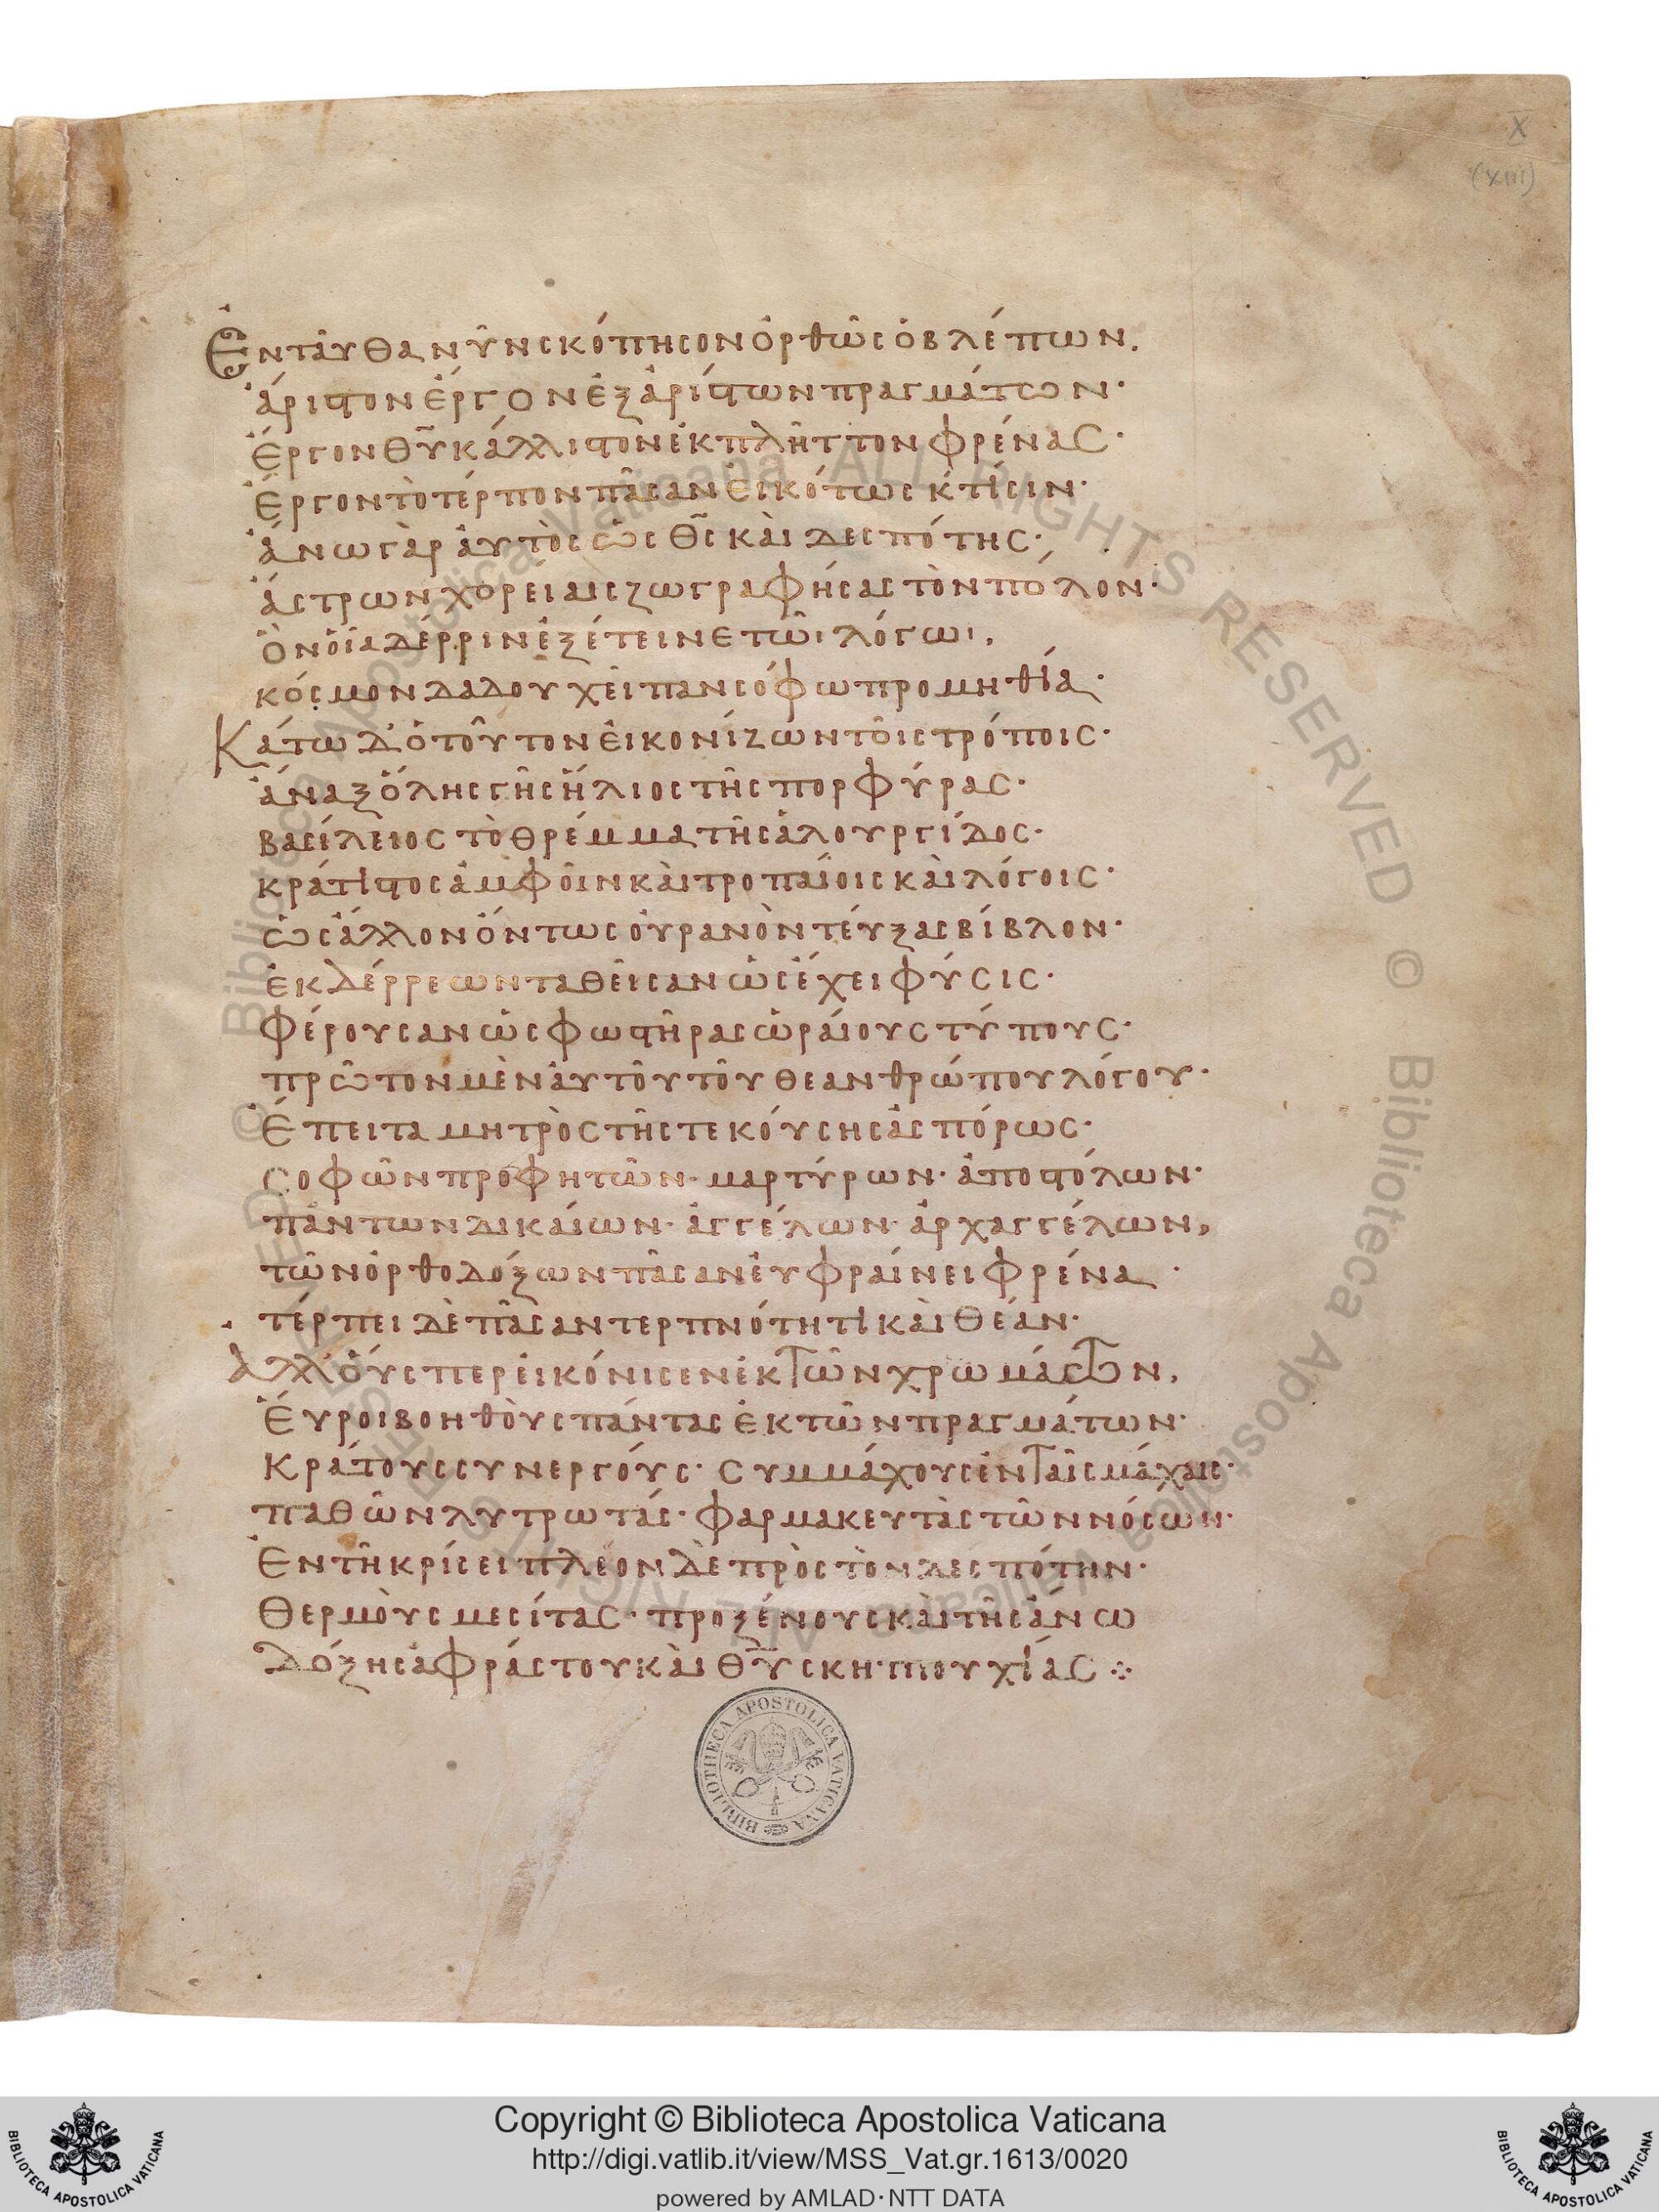 X
(XIII)
Ἐνταῦθα νῦν σκόπησον ὀρθῶς ὁ βλέπων.
ἄριστον ἔργον ἐξ ἀρίστων πραγμάτων·
ἔργον θ̅υ̅ κάλλιστον ἐκπλῆττον φρένας·
ἔργον τὸ τέρπον πᾶσαν εἰκότως κτίσιν·
ἄνω γὰρ αὐτὸς ὡς θ̅ς̅ καὶ δεσπότης·
ἄστρων χορείαις ζωγραφήσας τὸν πόλον·
ὃν οἷα δέρριν ἐξέτεινε τῶι λόγωι,
κόσμον δαδουχεῖ πανσόφω προμηθία·
Κάτω δ' ὁ τοῦτον εἰκονίζων τοῖς τρόποις·
ἄναξ ὅλης γῆς ἥλιος τῆς πορφύρας·
βασίλειος τὸ θρέμμα τῆς ἁλουργίδος·
κράτιστος ἀμφοῖν καὶ τροπαίοις καὶ λόγοις·
ὡς ἄλλον ὄντως οὐρανὸν τεύξας βίβλον·
ἐκ δέρρεων ταθεῖσαν ὡς ἔχει φύσις·
φέρουσαν ὡς φωστῆρας ὡραίους τύπους·
πρῶτον μὲν αὐτοῦ τοῦ θεανθρώπου λόγου·
ἔπειτα μητρὸς τῆς τεκούσης ἀσπόρως·
σοφῶν προφητῶν· μαρτύρων· ἀποστόλων·
πάντων δικαίων· ἀγγέλων· ἀρχαγγέλων,
τῶν ὀρθοδόξων πᾶσαν εὐφραίνει φρένα·
τέρπει δὲ πᾶσαν τερπνότητι καὶ θέαν·
Ἀλλ' οὕσπερ εἰκόνισεν ἐκ τῶν χρωμάτων,
Εὕροι βοηθοὺς πάντας ἐκ τῶν πραγμάτων·
Κράτους συνεργούς· συμμάχους ἐν ταῖς μάχαις·
παθῶν λυτρωτάς· φαρμακευτὰς τῶν νόσων·
Ἐν τῆ κρίσει πλέον δὲ πρὸς τὸν δεσπότην·
Θερμοὺς μεσίτας· προξένους καὶ τῆς ἄνω
Δόξης ἀφράστου καὶ θ̅υ̅ σκηπτουχίας ⁘
BIBLIOTHECA APOSTOLICA VATICANA
BIBLIOTHECA VATICANA
© Biblioteca Apostolica Vaticana ALL RIGHTS RESERVED
© Biblioteca Apostolica Vaticana ALL RIGHTS RESERVED
Copyright © Biblioteca Apostolica Vaticana
http://digi.vatlib.it/view/MSS_Vat.gr.1613/0020
powered by AMLAD·NTT DATA
BIBLIOTECA APOSTOLICA VATICANA
BIBLIOTECA APOSTOLICA VATICANA